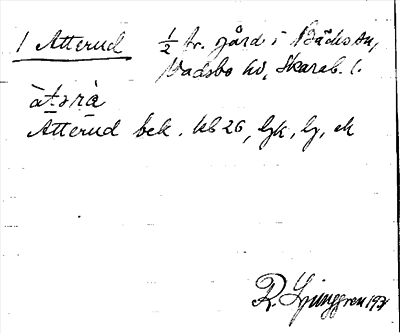 1 Atterud ½ tr. gård i Bäcks sn,
Vadsbo hd, Skarab. l.
àtərà
Atterud bek. kb 26, Gk, Ly, ek
R. Ljunggren 1931